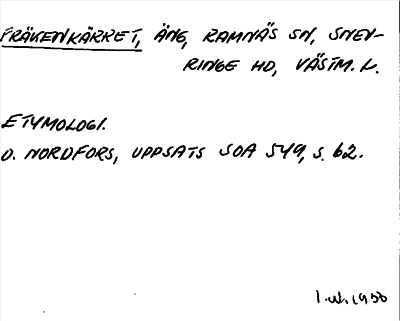 FRÄKENKÄRRET, ÄNG, RAMNÄS SN, SNEV-
RINGE HD, VÄSTM. L.
ETYMOLOGI.
O. NORDFORS, UPPSATS SOA 549, S. 62.